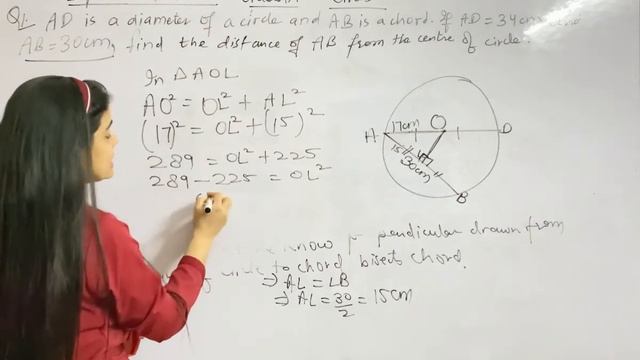 Q1. AD is a diameter of a circle and AB is a chord. If AD = 34cm
AB = 30cm, find the distance of AB from the centre of circle.
In △AOL
AO² = OL² + AL²
(17)² = OL² + (15)²
289 = OL² + 225
289 - 225 = OL²
A 17cm O D
15
30cm
B
know perpendicular drawn from
to chord bisects chord.
⇒ AL = LB
⇒ AL = 30/2 = 15cm